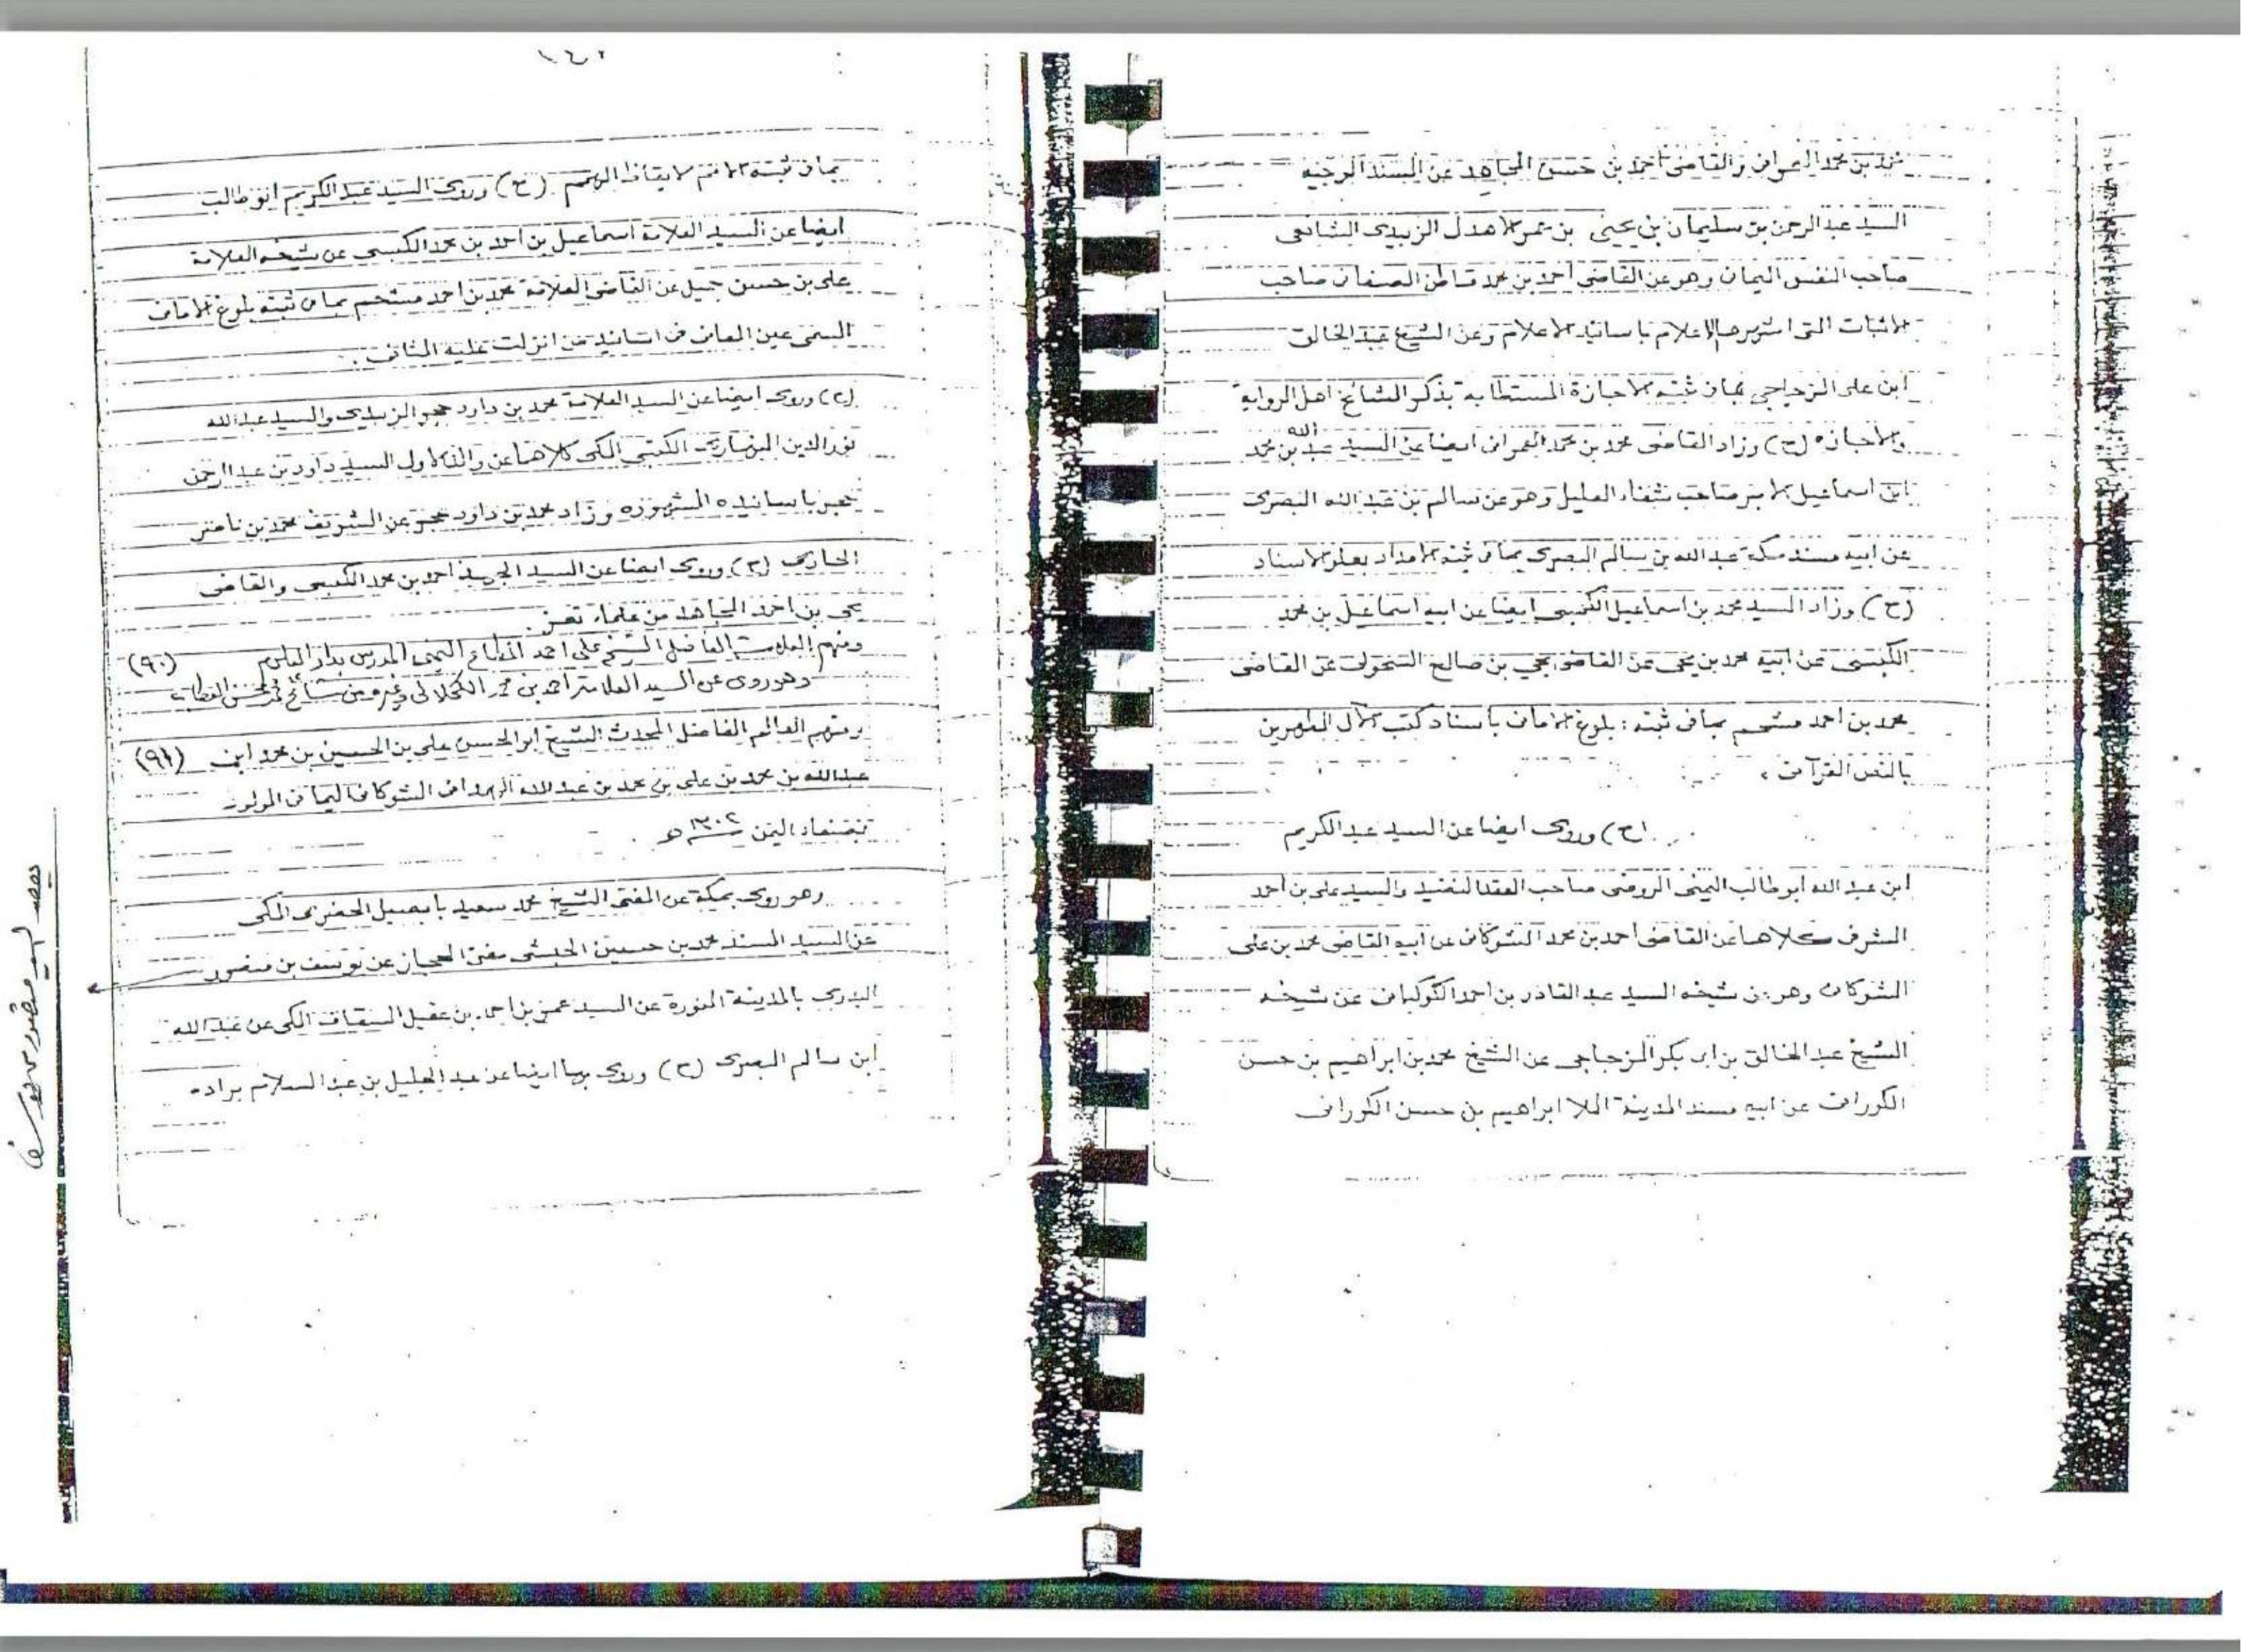 محمد بن محمد العمرانى والقاضى احمد بن حسن المجاهد عن المسند الوجيه
السيد عبد الرحمن بن سليمان بن يحيى بن عمر الاهدل الزبيدى الشافعى
صاحب النفس اليمانى وهو عن القاضى احمد بن محمد قاطن الصنعانى صاحب
الاثبات التى اشهرها الاعلام باسانيد الاعلام وعن الشيخ عبد الخالق
ابن على المزجاجي بما فى ثبته الاجازة المستطابة بذكر المشائخ اهل الرواية
والاجازه (ح) وزاد القاضى محمد بن محمد العمرانى ايضا عن السيد عبد الله بن محمد
ابن اسماعيل الامير صاحب شفاء العليل وهو عن سالم بن عبد الله البصرى
عن ابيه مسند مكة عبد الله بن سالم البصرى بما فى ثبته الامداد بعلو الاسناد
(ح) وزاد السيد محمد بن اسماعيل الكبسى ايضا عن ابيه اسماعيل بن محمد
الكبسى عن ابيه محمد بن يحى عن القاضى يحي بن صالح السحولى عن القاضى
محمد بن احمد مشحم بما فى ثبته : بلوغ الامانى باسناد كتب الآل المطهرين
بالنص القرآنى ،
(ح) وروى ايضا عن السيد عبد الكريم
ابن عبد الله ابو طالب اليمنى الروضى صاحب العقد النضيد والسيد على بن احمد
الشرفى كلاهما عن القاضى احمد بن محمد الشوكانى عن ابيه القاضى محمد بن على
الشوكانى وهو عن شيخه السيد عبد القادر بن احمد الكوكبانى عن شيخه
الشيخ عبد الخالق بن ابى بكر المزجاجى عن الشيخ محمد بن ابراهيم بن حسن
الكورانى عن ابيه مسند المدينة الملا ابراهيم بن حسن الكورانى
١٤٠
بما فى ثبته الامم لايقاظ الهمم (ح) وروى السيد عبد الكريم ابو طالب
ايضا عن السيد العلامة اسماعيل بن احمد بن محمد الكبسى عن شيخه العلامة
على بن حسن جميل عن القاضى العلامة محمد بن احمد مشحم بما فى ثبته بلوغ الامانى
المسمى عين المعانى فى اسانيد من انزلت عليه المثانى .
(ح) وروى ايضا عن السيد العلامة محمد بن داود حجر الزبيدى والسيد عبد الله
نور الدين النهارى الكتبى المكى كلاهما عن والد الاول السيد داود بن عبد الرحمن
حجر باسانيده المشهوره وزاد محمد بن داود حجر عن الشريف محمد بن ناصر
الحازمى (ح) وروى ايضا عن السيد احمد بن محمد الكبسى والقاضى
يحى بن احمد المجاهد من علماء تعز .
ومنهم العلامة الفاضل الشيخ على احمد اليمنى المدرس بدار العلوم (٩٠)
وهو روى عن السيد العلامة احمد بن محمد الكحلانى وغيره من مشائخ
ومنهم العالم الفاضل المحدث الشيخ ابو الحسن على بن الحسين بن محمد ابن (٩١)
عبد الله بن محمد بن على بن محمد بن عبد الله الشوكانى اليمانى المولود
بصنعاء اليمن ١٣٠٢ هـ
وهو روى بمكة عن المفتى الشيخ محمد سعيد بابصيل الحضرمى المكى
عن السيد المسند محمد بن حسين الحبشى مفتى الحجاز عن يوسف بن منصور
البدرى بالمدينة المنورة عن السيد عمر بن احمد بن عقيل السقاف المكى عن عبد الله
ابن سالم البصرى (ح) وروى بها ايضا عن عبد الجليل بن عبد السلام براده